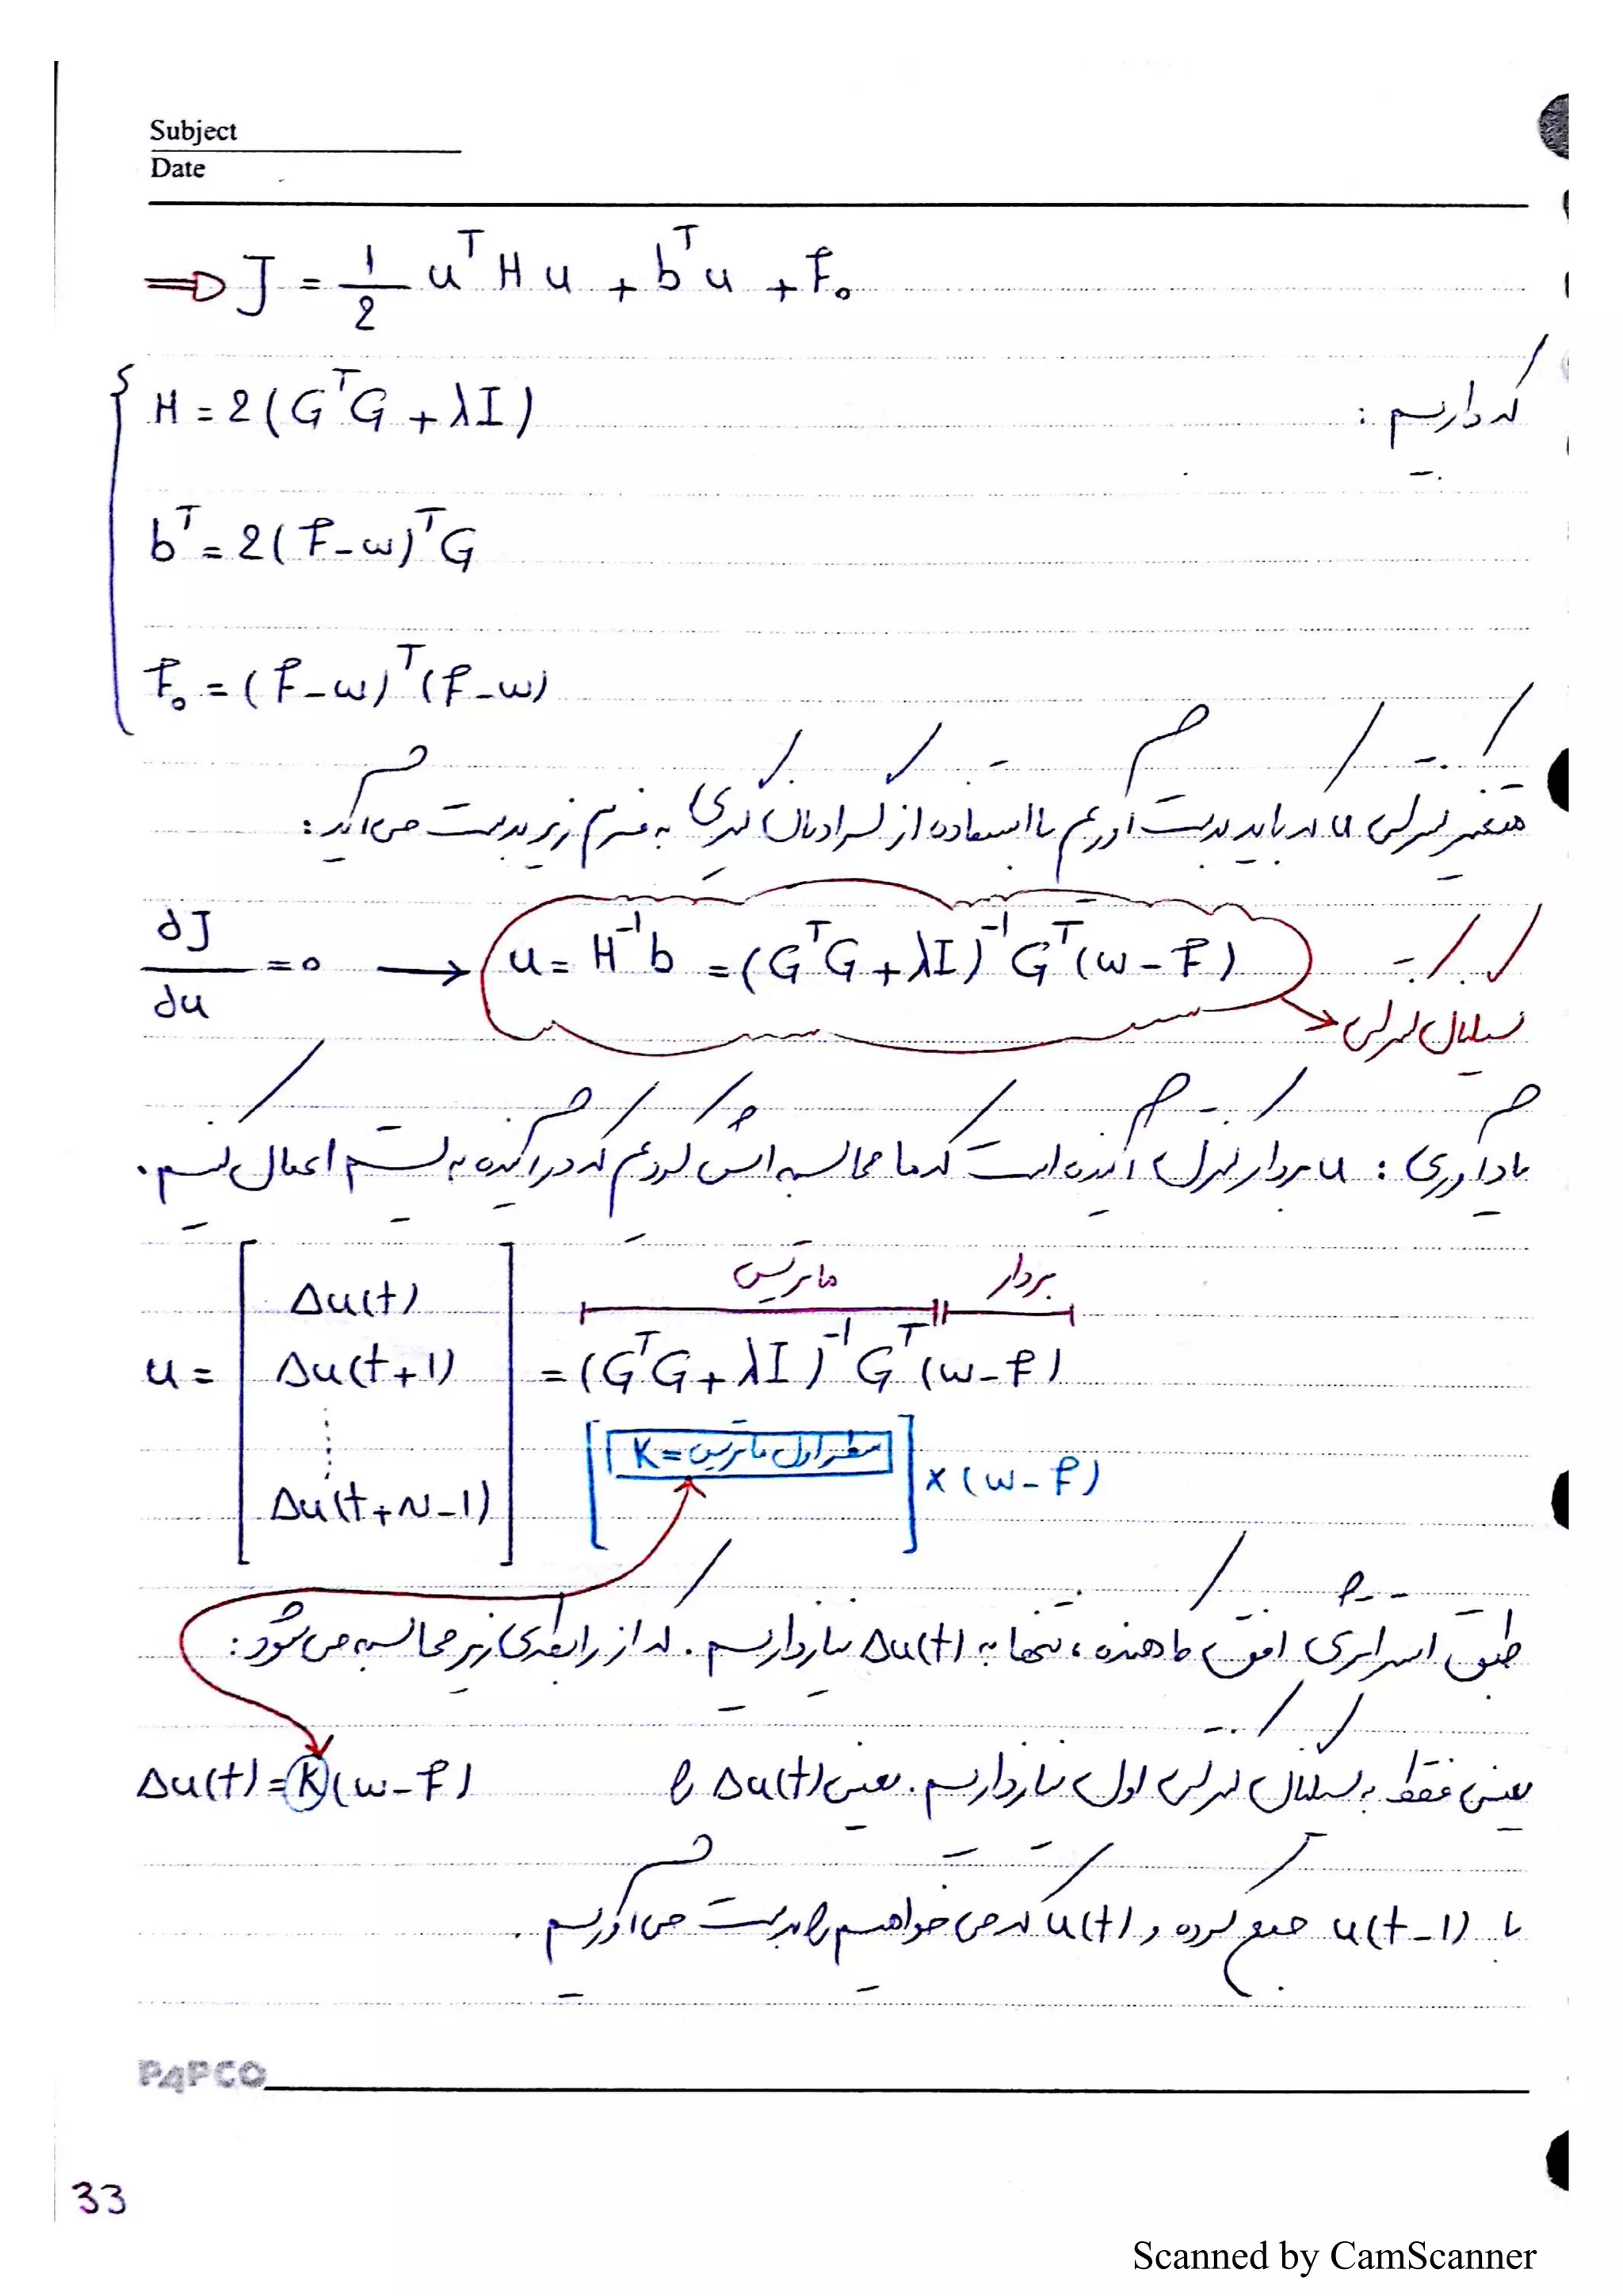 Subject
Date
⇒ J = 1/2 uᵀHu + bᵀu + f₀
که داریم :
H = 2(GᵀG + λI)
bᵀ = 2(f - w)ᵀG
f₀ = (f - w)ᵀ(f - w)
متغیر کنترلی u که باید بدست آوریم با استفاده از گرادیان گیری به فرم زیر بدست می‌آید :
dJ/du = 0 → u = H⁻¹b = (GᵀG + λI)⁻¹Gᵀ(w - f)
سیگنال کنترلی
یادآوری : u بردار کنترل آینده است که ما محاسبه‌اش کردیم که در آینده به سیستم اعمال کنیم .
ماتریس بردار
u = [Δu(t) Δu(t+1) ⋮ Δu(t+N-1)] = (GᵀG + λI)⁻¹Gᵀ(w - f)
[K = سطر اول ماتریس] × (w - f)
طبق استراتژی افق کاهنده ، تنها به Δu(t) نیاز داریم . که از رابطه‌ی زیر محاسبه می‌شود :
یعنی فقط به سیگنال کنترلی اول نیاز داریم . یعنی Δu(t) را
Δu(t) = K(w - f)
با u(t-1) جمع کرده و u(t) که می‌خواهیم را بدست می‌آوریم .
PAPCO
33
Scanned by CamScanner